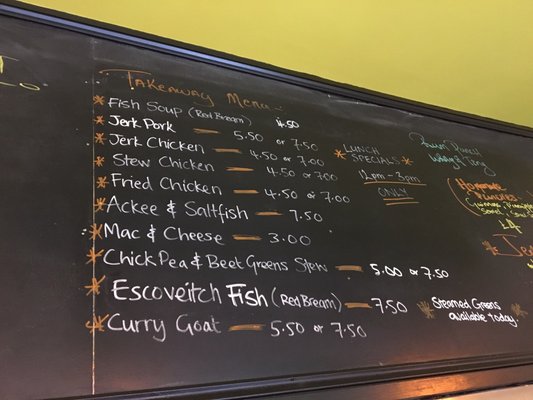 Takeaway Menu
Fish Soup (Red Bream) 4.50
Jerk Pork — 5.50 or 7.50
Jerk Chicken — 4.50 or 7.00
Stew Chicken — 4.50 or 7.00
Fried Chicken — 4.50 or 7.00
Ackee & Saltfish — 7.50
Mac & Cheese — 3.00
Chick Pea & Beet Greens Stew — 5.00 or 7.50
Escoveitch Fish (Red Bream) — 7.50
Curry Goat — 5.50 or 7.50
LUNCH
SPECIALS
12pm - 3pm
ONLY
Steamed Greens
available today
Homemade
Punches